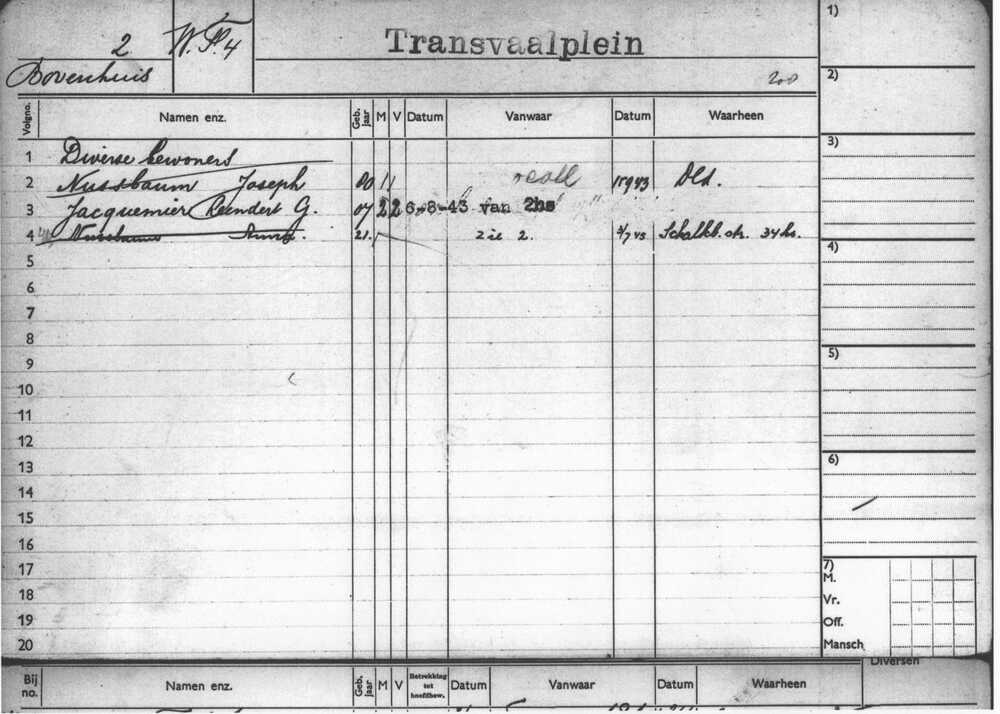 2 Transvaalplein 1)
Bovenhuis 200 2)
Volgno. Namen enz. Geb. jaar M V Datum Vanwaar Datum Waarheen
3)
1 Diverse bewoners
2 Nussbaum Joseph 00 1 1 15943 Dld.
3 Jacquemier Reendert G. 07 2 2 6-8-43 van 2hs
4 21. zie 2. Schalkb. str. 34 hs.
4)
5
6
7
8
5)
9
10
11
12
6)
13
14
15
16
7)
17 M.
18 Vr.
19 Off.
20 Mansch.
Diversen
Bij no. Namen enz. Geb. jaar M V Betrekking tot hoofdbew. Datum Vanwaar Datum Waarheen